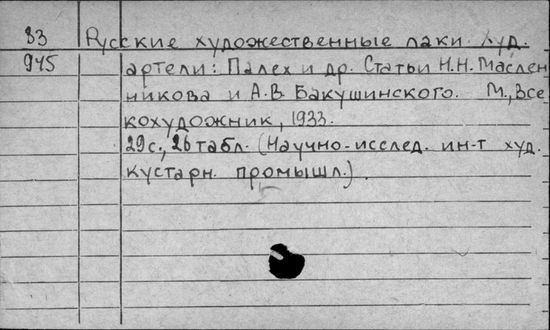 83 Русские художественные лаки. Худ.
945 артели: Палех и др. Статьи Н.Н. Маслен
никова и А.В. Бакушинского. М., Все
кохудожник, 1933.
29с., 26 табл. (Научно-исслед. ин-т худ.
кустарн. промышл.).